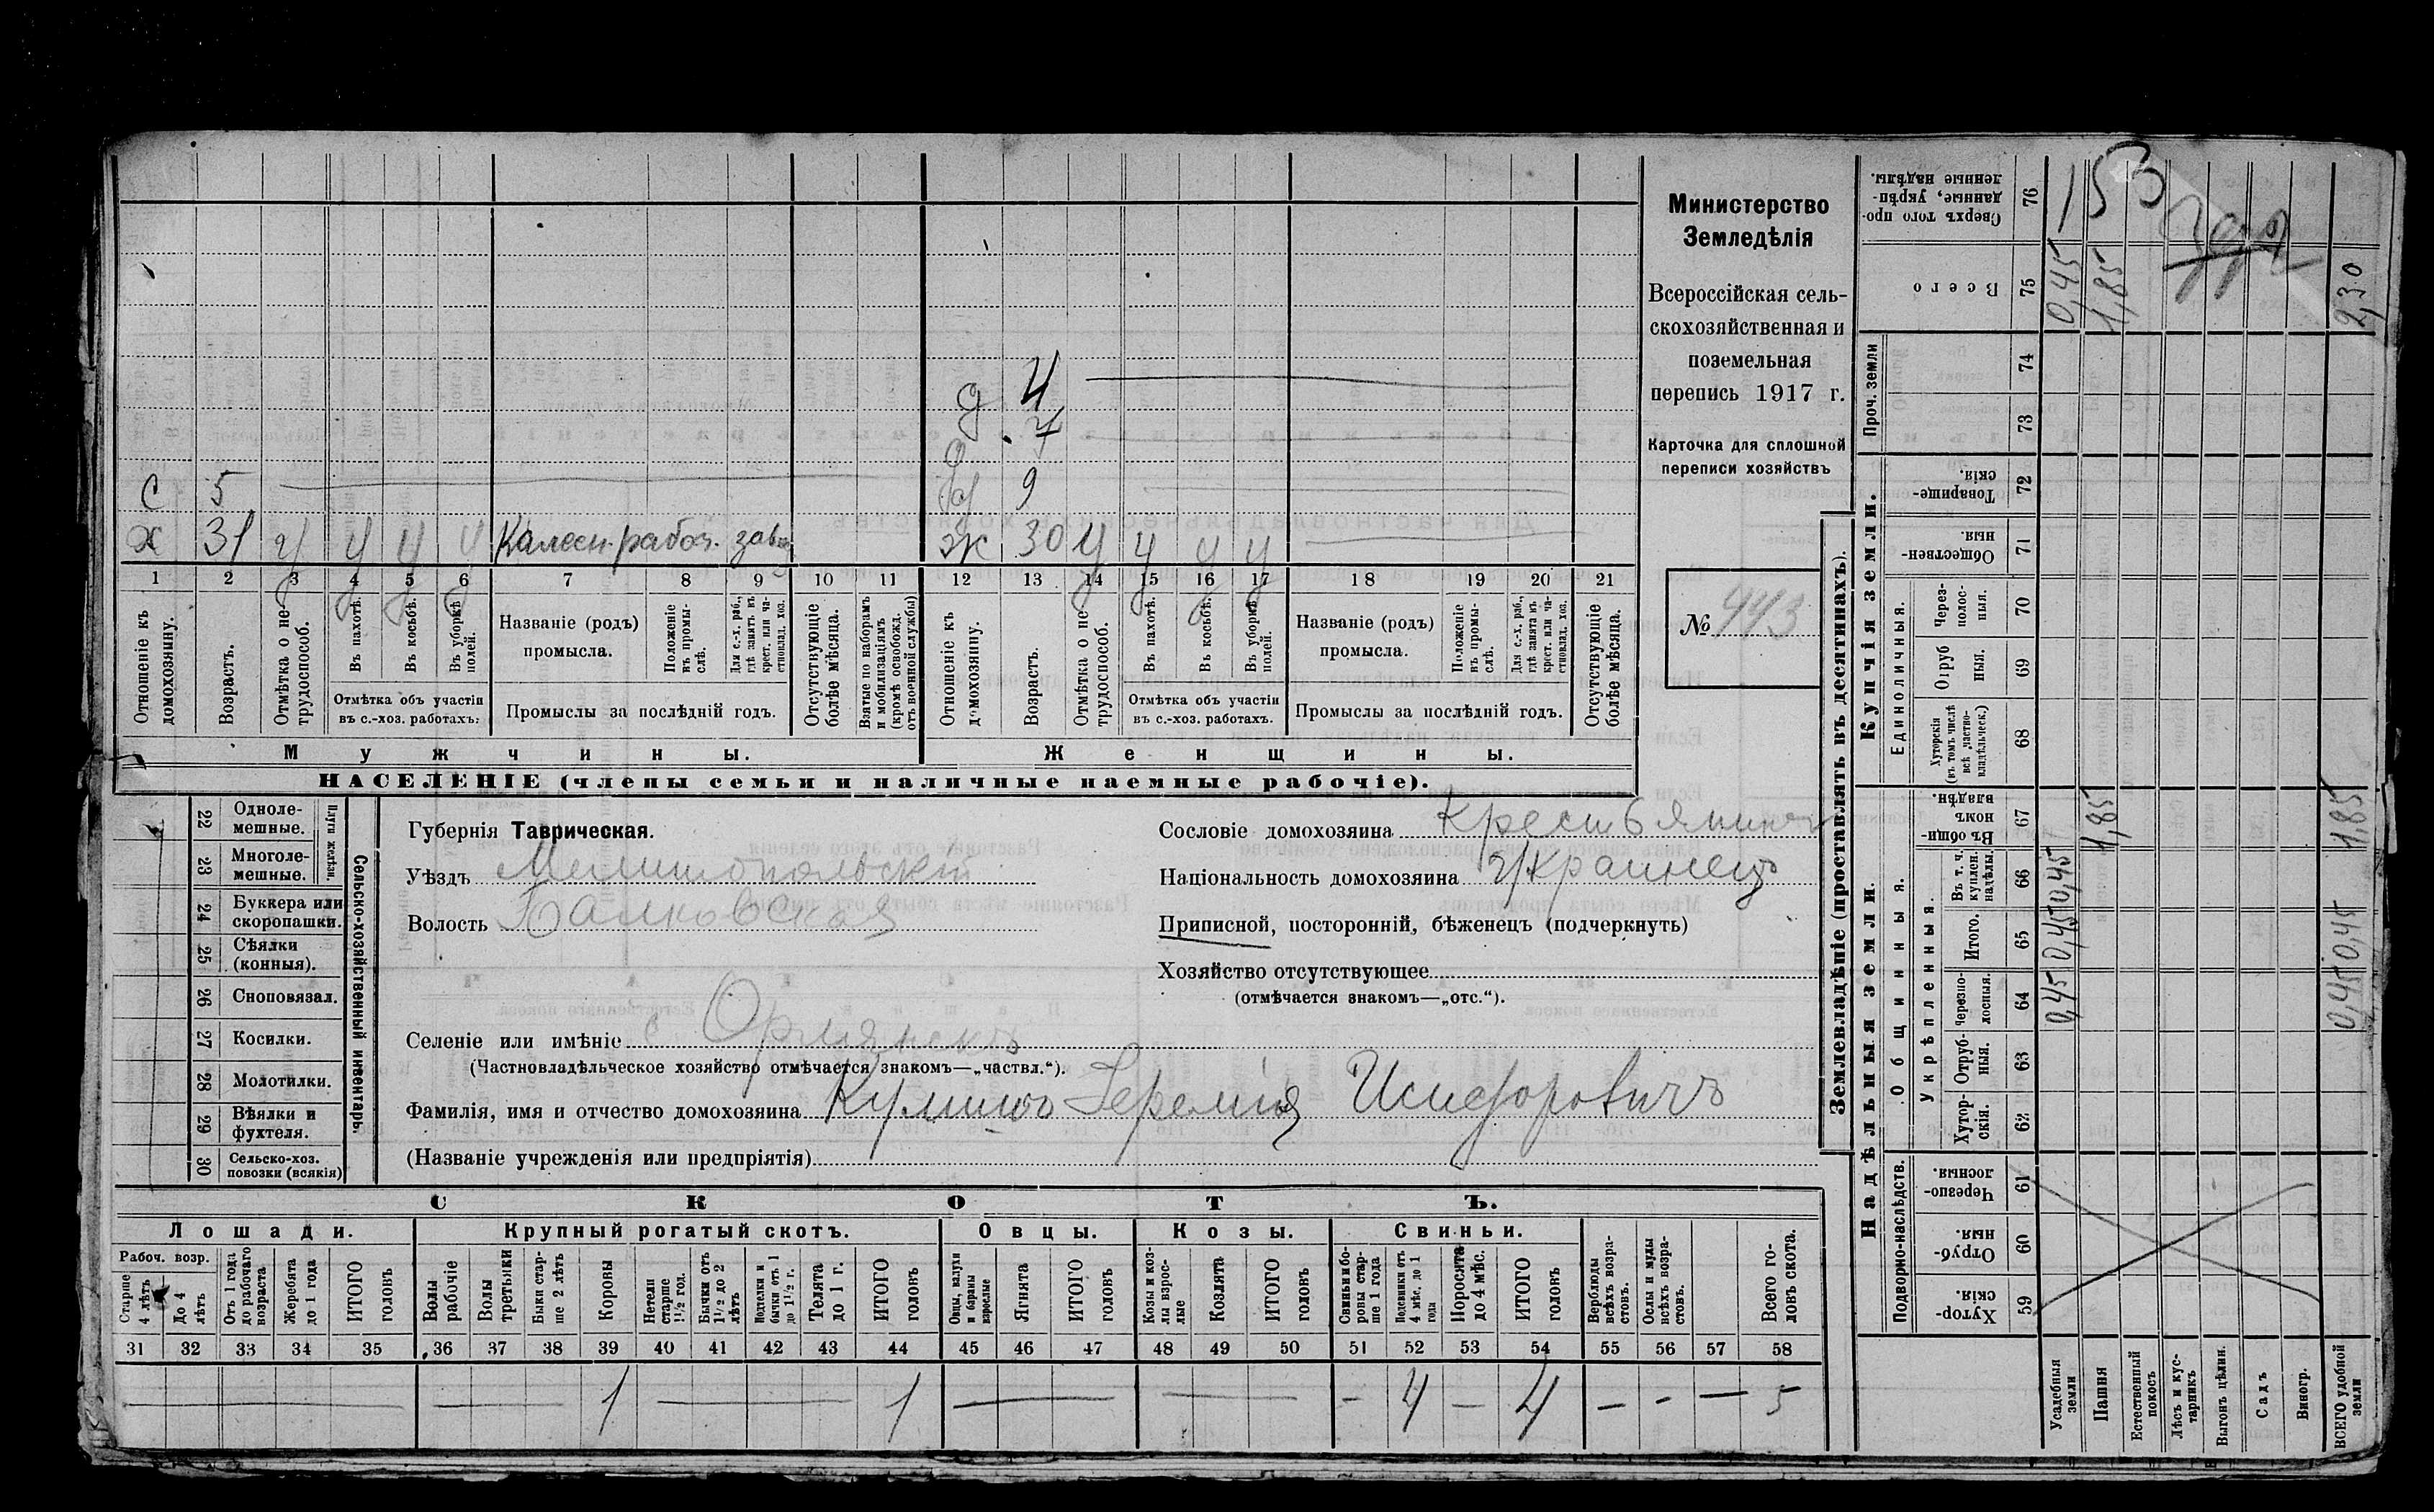 С 5
Х 31 у у у у Колесн. рабоч. зав.
д 4
д 7
д 9
Ж 30 у у у у
1 2 3 4 5 6 7 8 9 10 11 12 13 14 15 16 17 18 19 20 21
Отношеніе къ домохозяину.
Возрастъ.
Отмѣтка о не-трудоспособ.
Въ пахотѣ.
Въ косьбѣ.
Въ уборкѣ полей.
Отмѣтка объ участіи въ с.-хоз. работахъ:
Названіе (родъ) промысла.
Положеніе въ промы-слѣ.
Для с.-х. раб., гдѣ занятъ въ крест. или ча-стновлад. хоз.
Промыслы за послѣдній годъ.
Отсутствующіе болѣе мѣсяца.
Взятые по наборамъ и мобилизаціямъ (кромѣ освобожд. отъ военной службы)
Отношеніе къ домохозяину.
Возрастъ.
Отмѣтка о не-трудоспособ.
Въ пахотѣ.
Въ косьбѣ.
Въ уборкѣ полей.
Отмѣтка объ участіи въ с.-хоз. работахъ.
Названіе (родъ) промысла.
Положеніе въ промы-слѣ.
Для с.-х. раб., гдѣ занята въ крест. или ча-стновлад. хоз.
Промыслы за послѣдній годъ.
Отсутствующіе болѣе мѣсяца.
Мужчины. Женщины.
НАСЕЛЕНІЕ (члены семьи и наличные наемные рабочіе).
Министерство
Земледѣлія
Всероссійская сель-
скохозяйственная и
поземельная
перепись 1917 г.
Карточка для сплошной
переписи хозяйствъ
№ 443
22 Одноле-мешные.
23 Многоле-мешные.
Плуги желѣзн.
24 Буккера или скоропашки.
25 Сѣялки (конныя).
26 Сноповязал.
27 Косилки.
28 Молотилки.
29 Вѣялки и фухтеля.
30 Сельско-хоз. повозки (всякія)
Сельско-хозяйственный инвентарь.
Губернія Таврическая.
Уѣздъ Мелитопольскій
Волость Балковская
Сословіе домохозяина Крестьянинъ
Національность домохозяина Украинецъ
Приписной, посторонній, бѣженецъ (подчеркнуть)
Хозяйство отсутствующее
(отмѣчается знакомъ—„отс.“).
Селеніе или имѣніе с Орлянскъ
(Частновладѣльческое хозяйство отмѣчается знакомъ—„частвл.“).
Фамилія, имя и отчество домохозяина Іеремія Исидоровичъ
(Названіе учрежденія или предпріятія)
СКОТЪ.
Лошади. Крупный рогатый скотъ. Овцы. Козы. Свиньи.
Рабоч. возр.
Старше 4 лѣтъ
До 4 лѣтъ
Отъ 1 года до рабочаго возраста
Жеребята до 1 года
ИТОГО головъ
Волы рабочіе
Волы третьяки
Быки стар-ше 2 лѣтъ
Коровы
Нетели старше 1½ год.
Бычки отъ 1½ до 2 лѣтъ
Подтелки и бычки отъ 1 до 1½ г.
Телята до 1 г.
ИТОГО головъ
Овцы, валухи и бараны взрослые
Ягнята
ИТОГО головъ
Козы и коз-лы взрос-лые
Козлята
ИТОГО головъ
Свиньи и бо-ровы стар-ше 1 года
Подсвинки отъ 4 мѣс. до 1 года
Поросята до 4 мѣс.
ИТОГО головъ
Верблюды всѣхъ возра-стовъ.
Ослы и мулы всѣхъ возра-стовъ.
Всего го-ловъ скота.
31 32 33 34 35 36 37 38 39 40 41 42 43 44 45 46 47 48 49 50 51 52 53 54 55 56 57 58
1 — 1 — — — 4 — 4 — — — 5
Землевладѣніе (проставлять въ десятинахъ).
Надѣльныя земли. Купчія земли. Проч. земли
Подворно-наслѣдств. Общинныя. Единоличныя.
Укрѣпленныя.
Хутор-скія. 59
Отруб-ныя. 60
Черезпо-лосныя. 61
Хутор-скія. 62
Отруб-ныя. 63
Черезпо-лосныя. 64
Итого. 65
Въ т. ч. куплен. надѣлы. 66
Въ общин-номъ владѣн. 67
Хуторскія (въ томъ числѣ всѣ „частно-владѣльческ.) 68
Отруб ныя. 69
Через-полос-ныя. 70
Обществен-ныя. 71
Товарище-скія. 72
73
74
Всего 75
Сверхъ того про-данные, укрѣп-ленные надѣлы. 76
Усадебныя земли 0,45 0,45 0,45 0,45
Пашня 1,85 1,85
Естественный покосъ
Лѣсъ и кус-тарникъ
Выгонъ цѣлин.
Садъ
Виногр.
ВСЕГО удобной земли 0,45 0,45 1,85 2,30
153